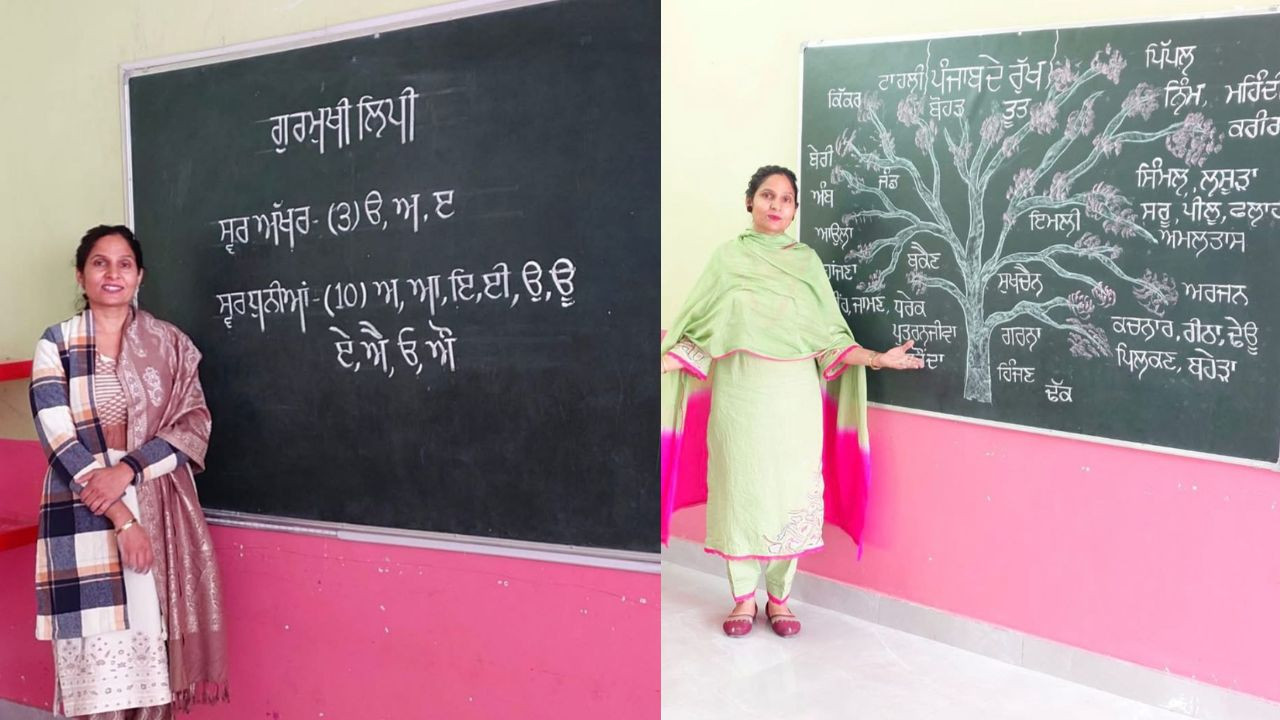 ਗੁਰਮੁਖੀ ਲਿਪੀ
ਸ੍ਵਰ ਅੱਖਰ- (3) ੳ, ਅ, ੲ
ਸ੍ਵਰ ਧੁਨੀਆਂ- (10) ਅ, ਆ, ਇ, ਈ, ਉ, ਊ
ਏ, ਐ, ਓ, ਔ
ਪੰਜਾਬ ਦੇ ਰੁੱਖ
ਟਾਹਲੀ
ਪਿੱਪਲ਼
ਕਿੱਕਰ
ਬੋਹੜ
ਤੂਤ
ਨਿੰਮ,
ਕਰੀਰ
ਬੇਰੀ
ਜੰਡ
ਸਿੰਮਲ਼, ਲਸੂੜਾ
ਅੰਬ
ਸਰੂ, ਪੀਲੂ, ਫਲ੍ਹਾਰ
ਇਮਲੀ
ਆਉਲ਼ਾ
ਅਮਲਤਾਸ
ਬਕੈਣ
ਸੁਖਚੈਨ
ਅਰਜਨ
ਜਾਮਣ, ਧਰੇਕ
ਪੁਤਰਨਜੀਵਾ
ਗਰਨਾ
ਕਚਨਾਰ, ਰੀਠਾ, ਢੇਊ
ਪਿਲਕਣ, ਬਹੇੜਾ
ਹਿੰਜਣ
ਢੱਕ